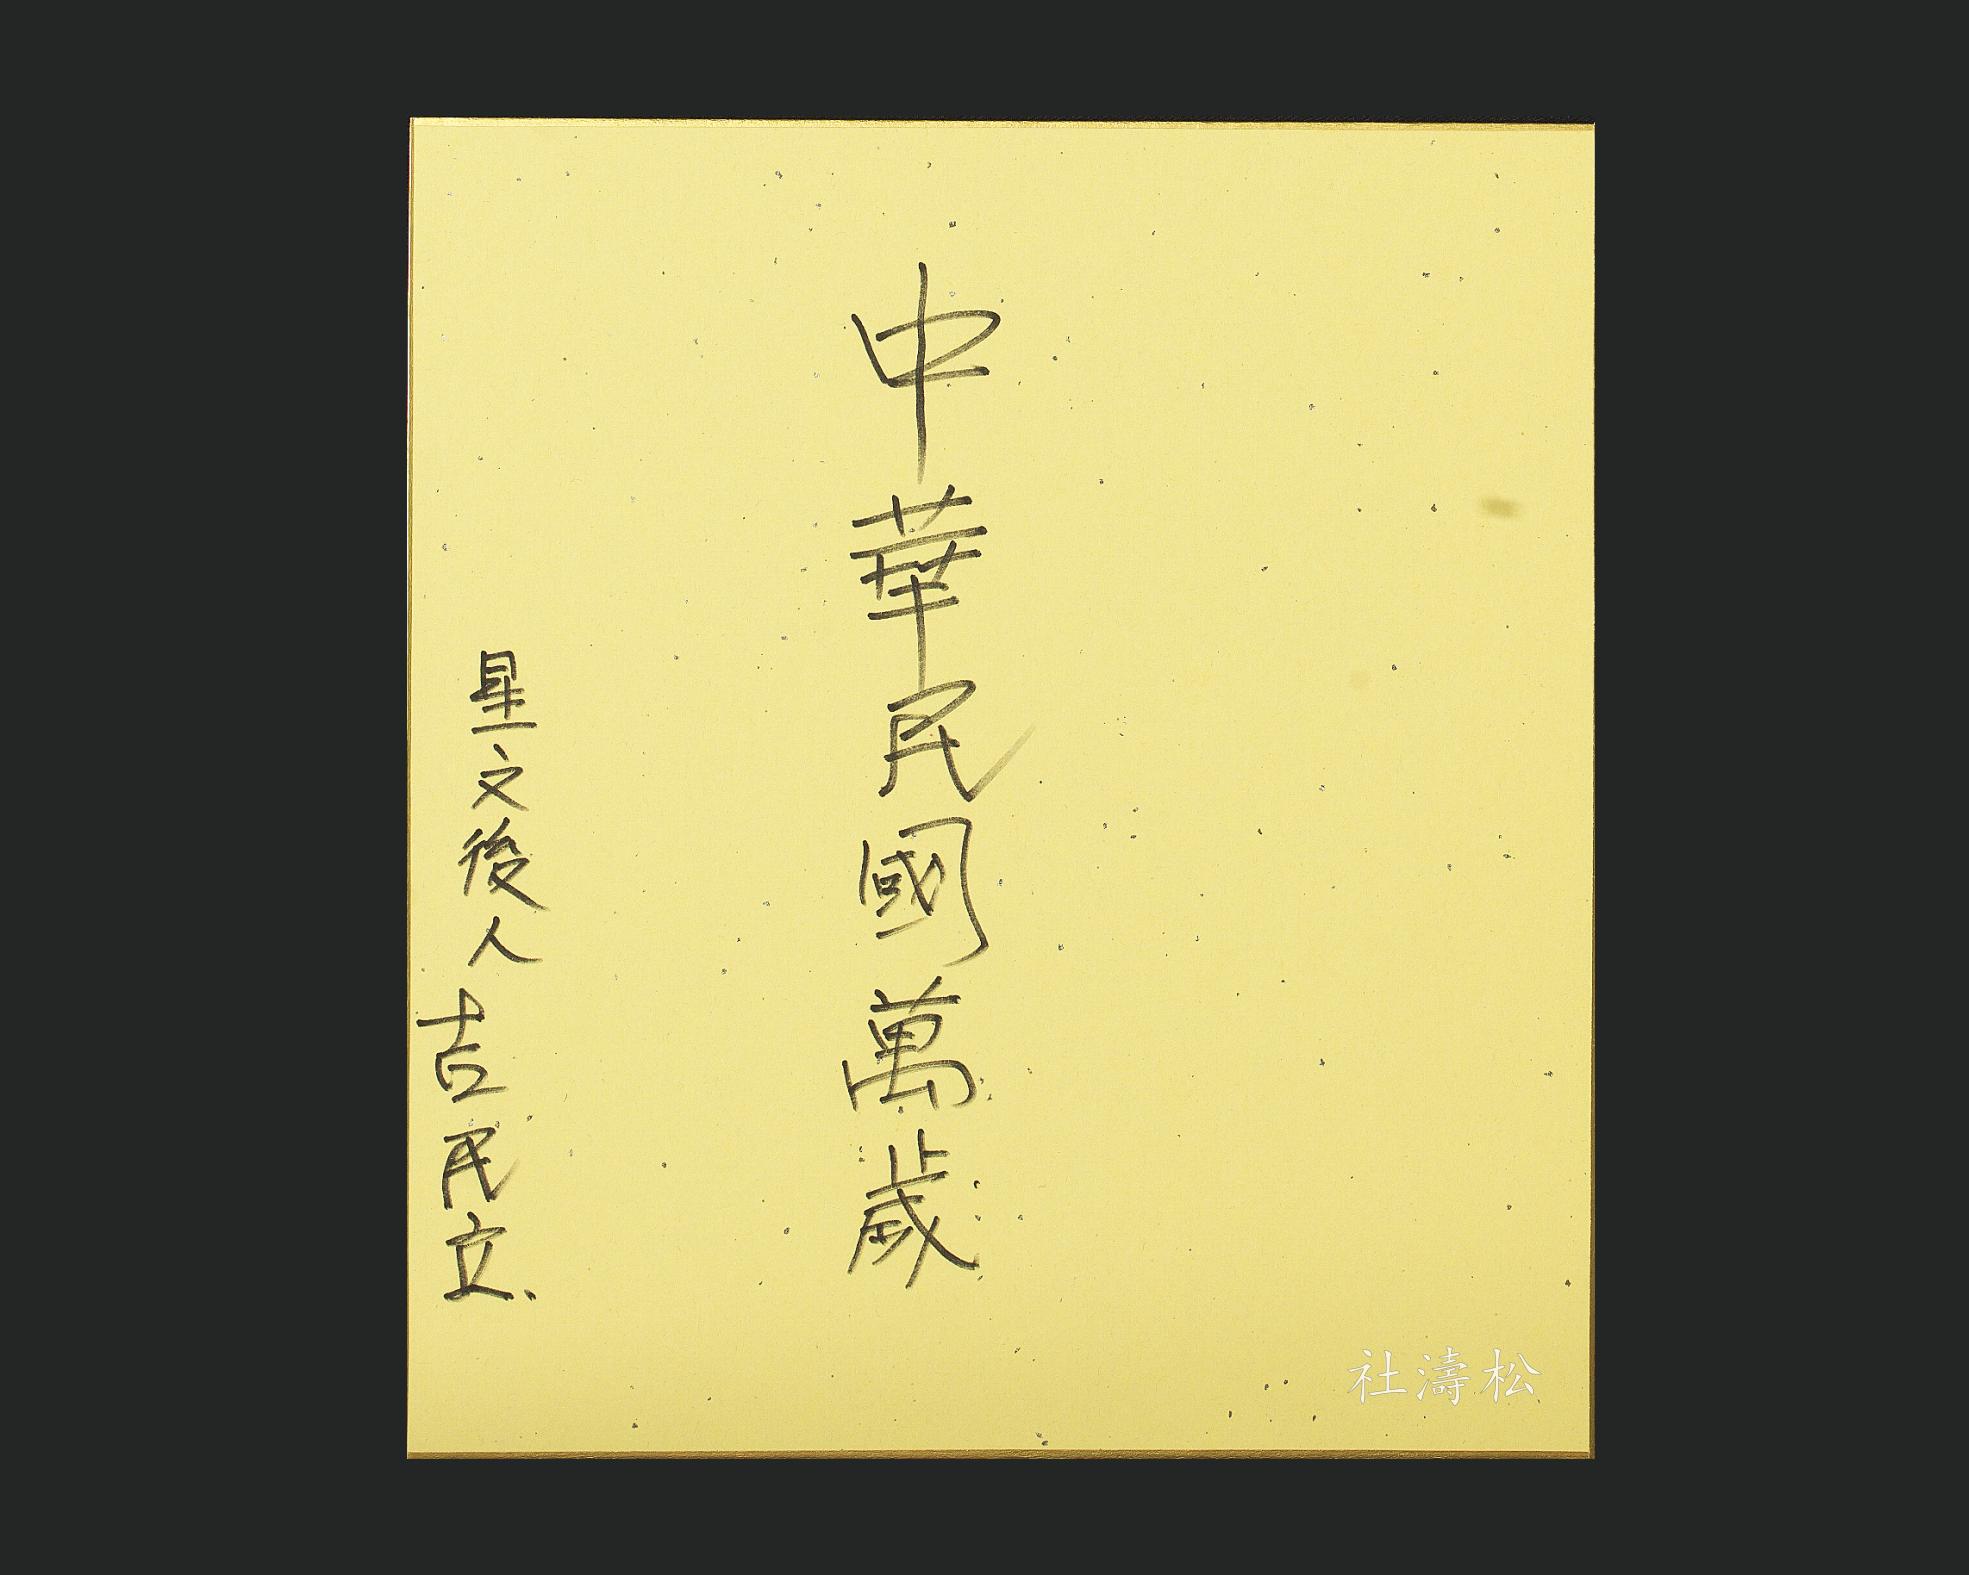 中華民國萬歲
星文後人吉民立
社濤松